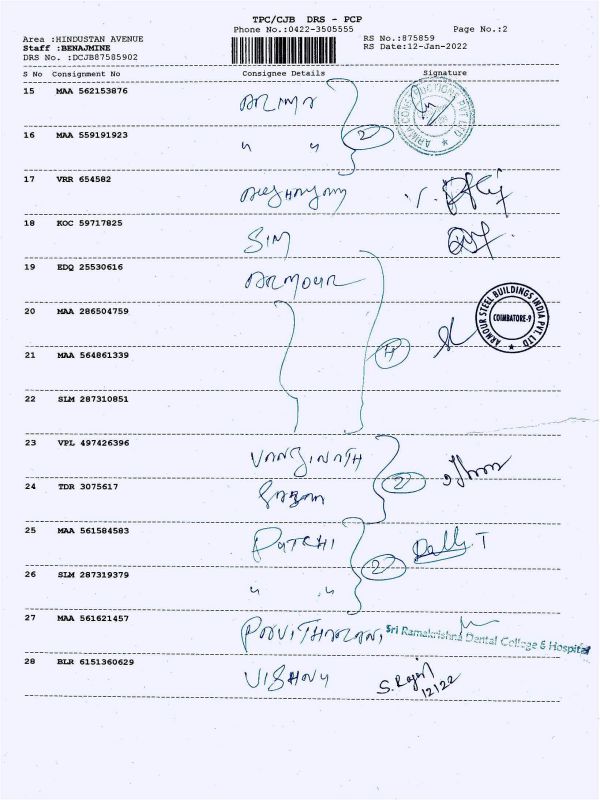 TPC/CJB DRS - PCP
Phone No.:0422-3505555 Page No.:2
Area :HINDUSTAN AVENUE RS No.:875859
Staff :BENAJMINE RS Date:12-Jan-2022
DRS No. :DCJB87585902
S No Consignment No Consignee Details Signature
15 MAA 562153876
ARMA CONSTRUCTIONS PVT LTD
16 MAA 559191923 " " 2
17 VRR 654582
18 KOC 59717825 SIM
19 EDQ 25530616 ARMOUR
20 MAA 286504759
ARMOUR STEEL BUILDINGS INDIA PVT LTD
COIMBATORE-9
21 MAA 564861339 4
22 SLM 287310851
23 VPL 497426396
24 TDR 3075617 2
25 MAA 561584583 PATCHI
26 SLM 287319379 " " 2
27 MAA 561621457 Sri Ramakrishna Dental College & Hospital
28 BLR 6151360629 VISHNU S. Rajan
12/22